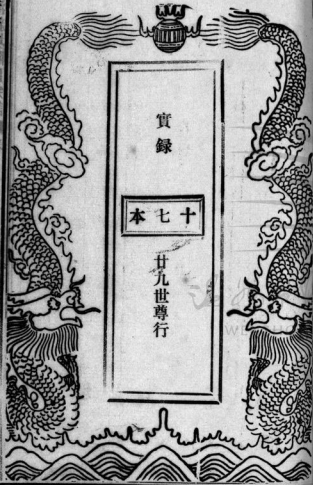 實録
十七本
廿九世尊行